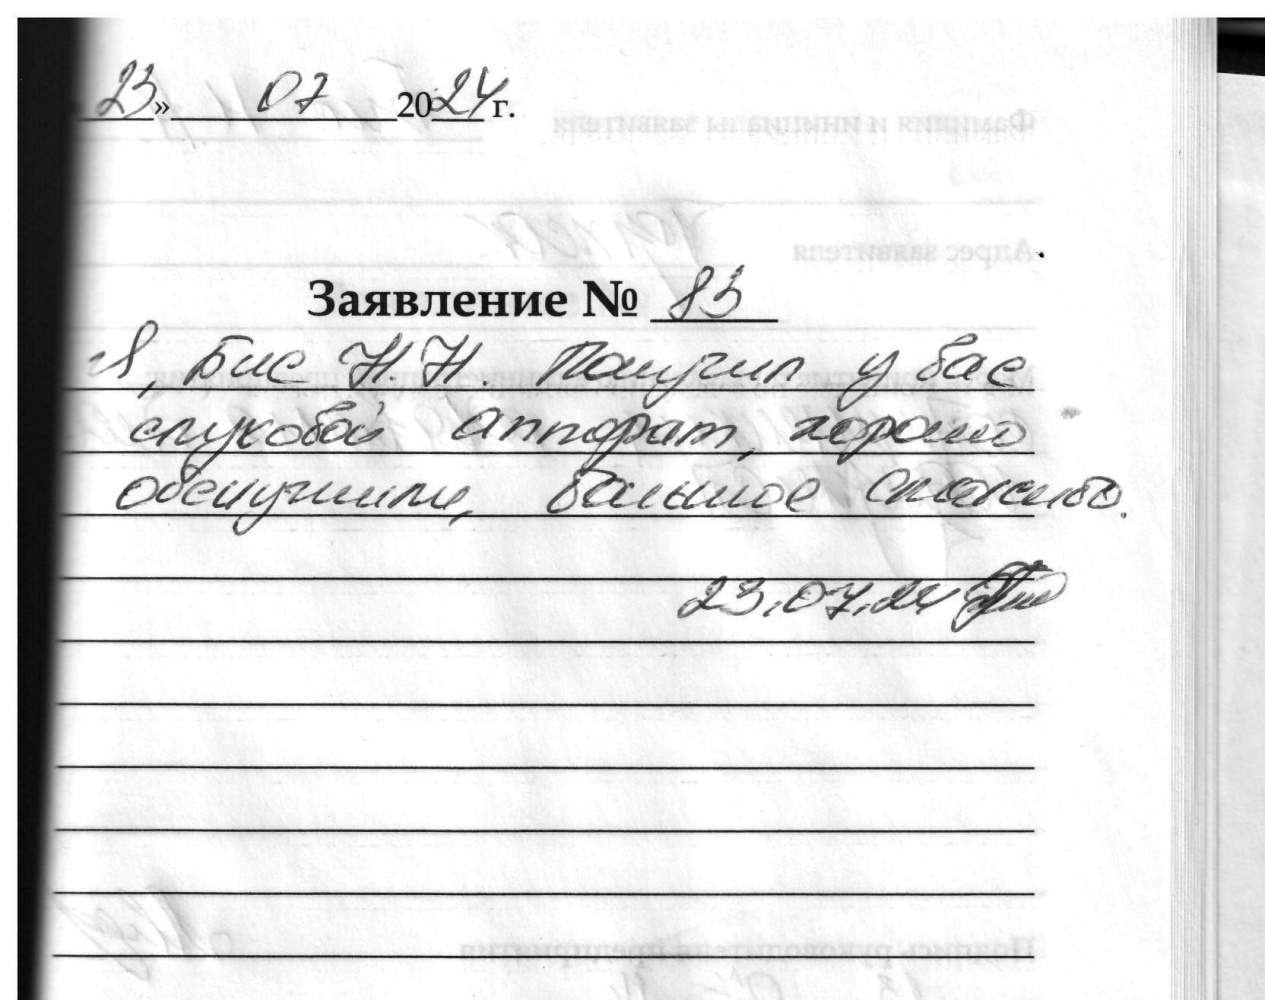 23» 07 2024 г.
Заявление № 83
Я, Бис Н.Н. Получил у вас
слуховой аппарат, хорошо
обслужили, большое спасибо.
23.07.24